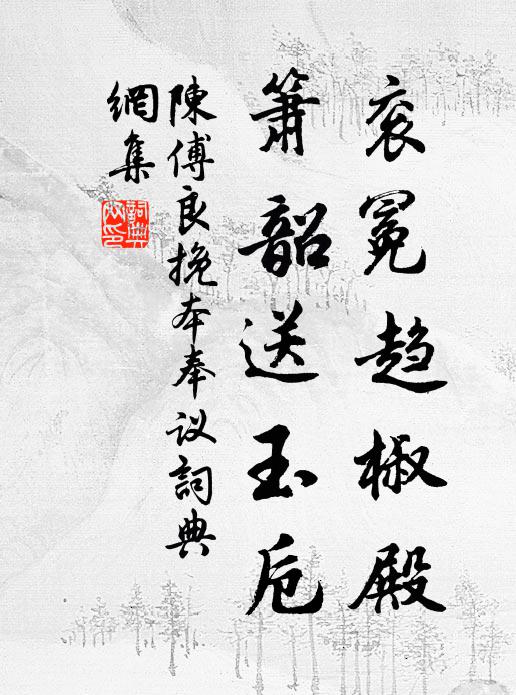 衮冕趋椒殿
箫韶送玉卮
陳傅良挽本奉议詞典
網集
詞典網印